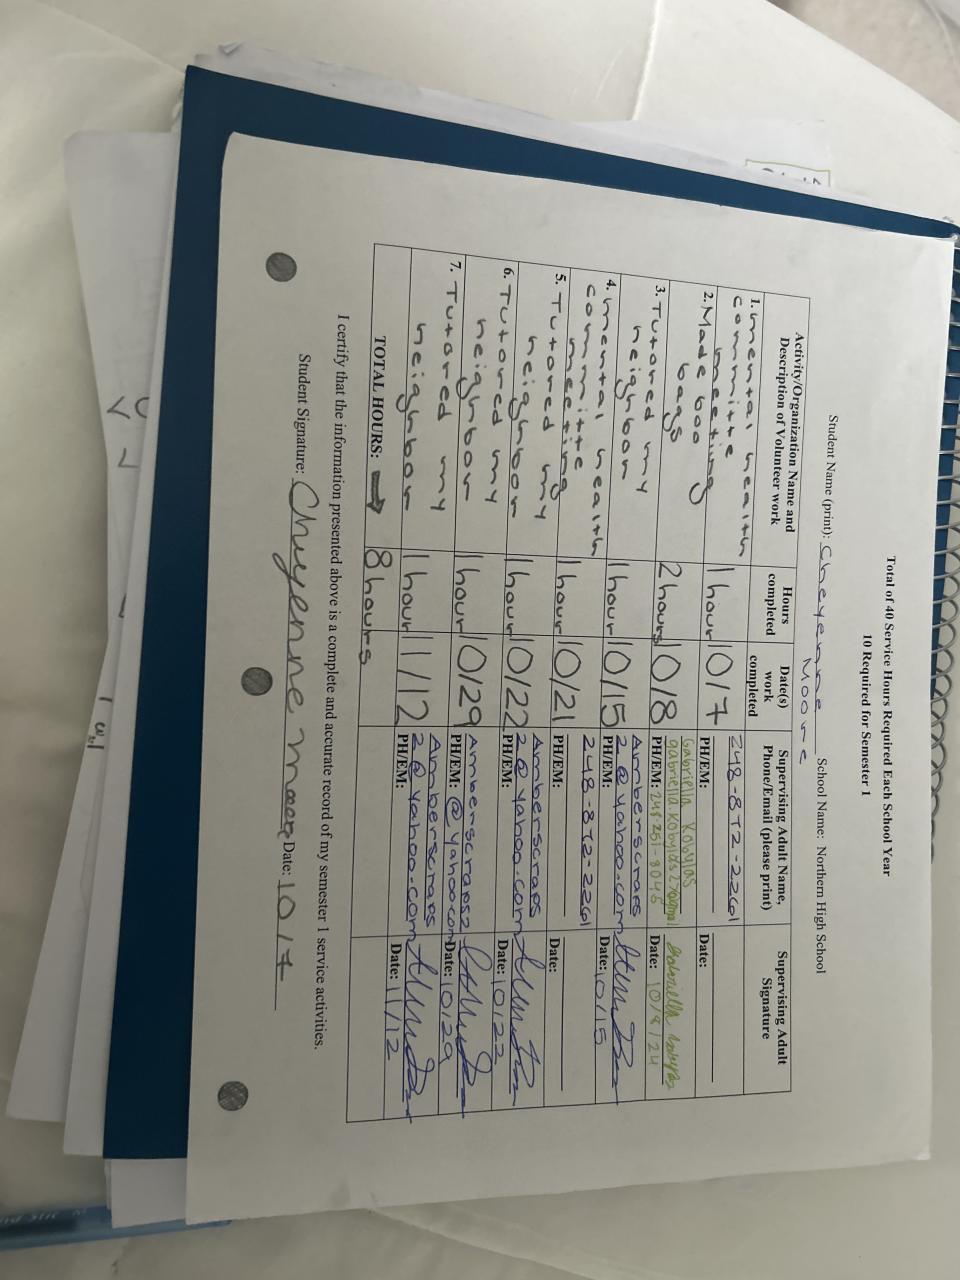 Total of 40 Service Hours Required Each School Year
10 Required for Semester 1
Student Name (print): Cheyenne Moore School Name: Northern High School
Activity/Organization Name and Description of Volunteer work
Hours completed
Date(s) work completed
Supervising Adult Name, Phone/Email (please print)
Supervising Adult Signature
1. mental health committe meeting
1 hour
10/7
248-872-2261
PH/EM:
Date:
2. Made boo bags
2 hours
10/8
Gabriella Kobylas
PH/EM: 248 251-8045
Date: 10/8/24
3. Tutored my neighbor
1 hour
10/15
Amberscraps
2@yahoo.com
PH/EM:
Date: 10/15
4. mental health committe meeting
1 hour
10/21
248-872-2261
PH/EM:
Date:
5. Tutored my neighbor
1 hour
10/22
Amberscraps
2@yahoo.com
PH/EM:
Date: 10/22
6. Tutored my neighbor
1 hour
10/29
Amberscraps2
PH/EM: @yahoo.com
Date: 10/29
7. Tutored my neighbor
1 hour
11/12
Amberscraps
2@yahoo.com
PH/EM:
Date: 11/12
TOTAL HOURS: 8 hours
I certify that the information presented above is a complete and accurate record of my semester 1 service activities.
Student Signature: Cheyenne Moore Date: 10/7